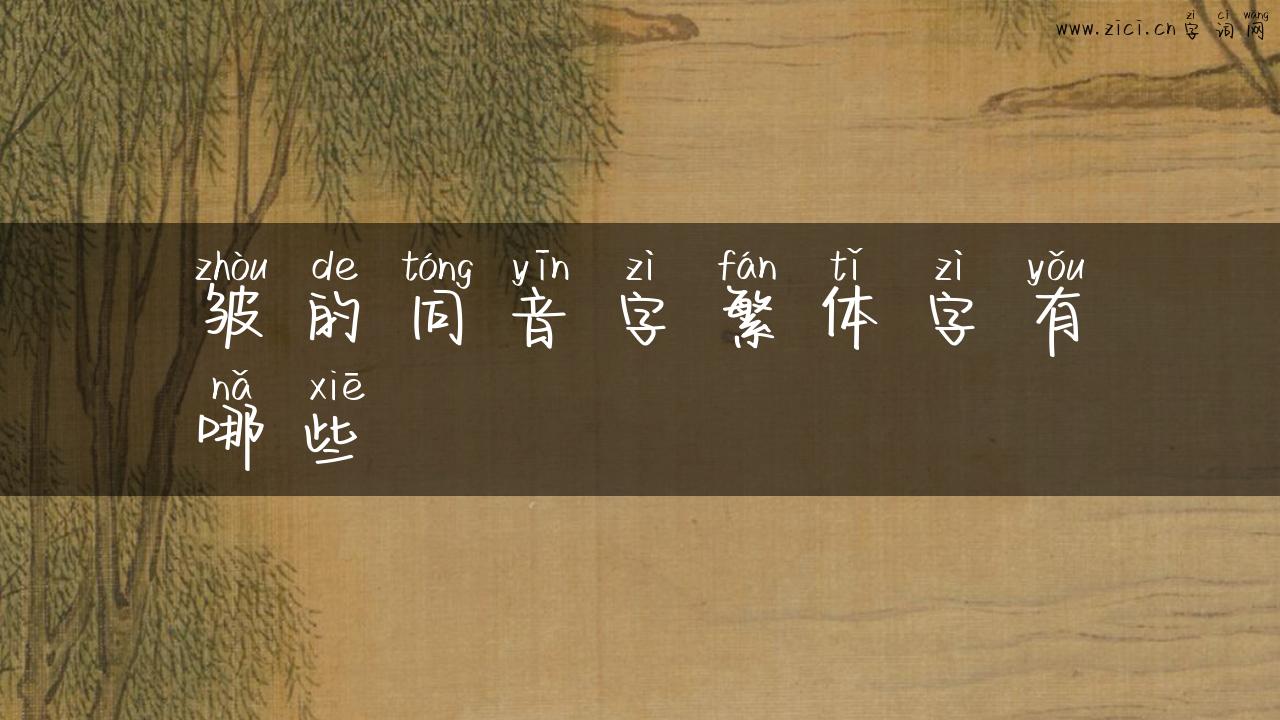 zì cí wǎng
www.zici.cn字词网
zhòu de tóng yīn zì fán tǐ zì yǒu
皱的同音字繁体字有
nǎ xiē
哪些